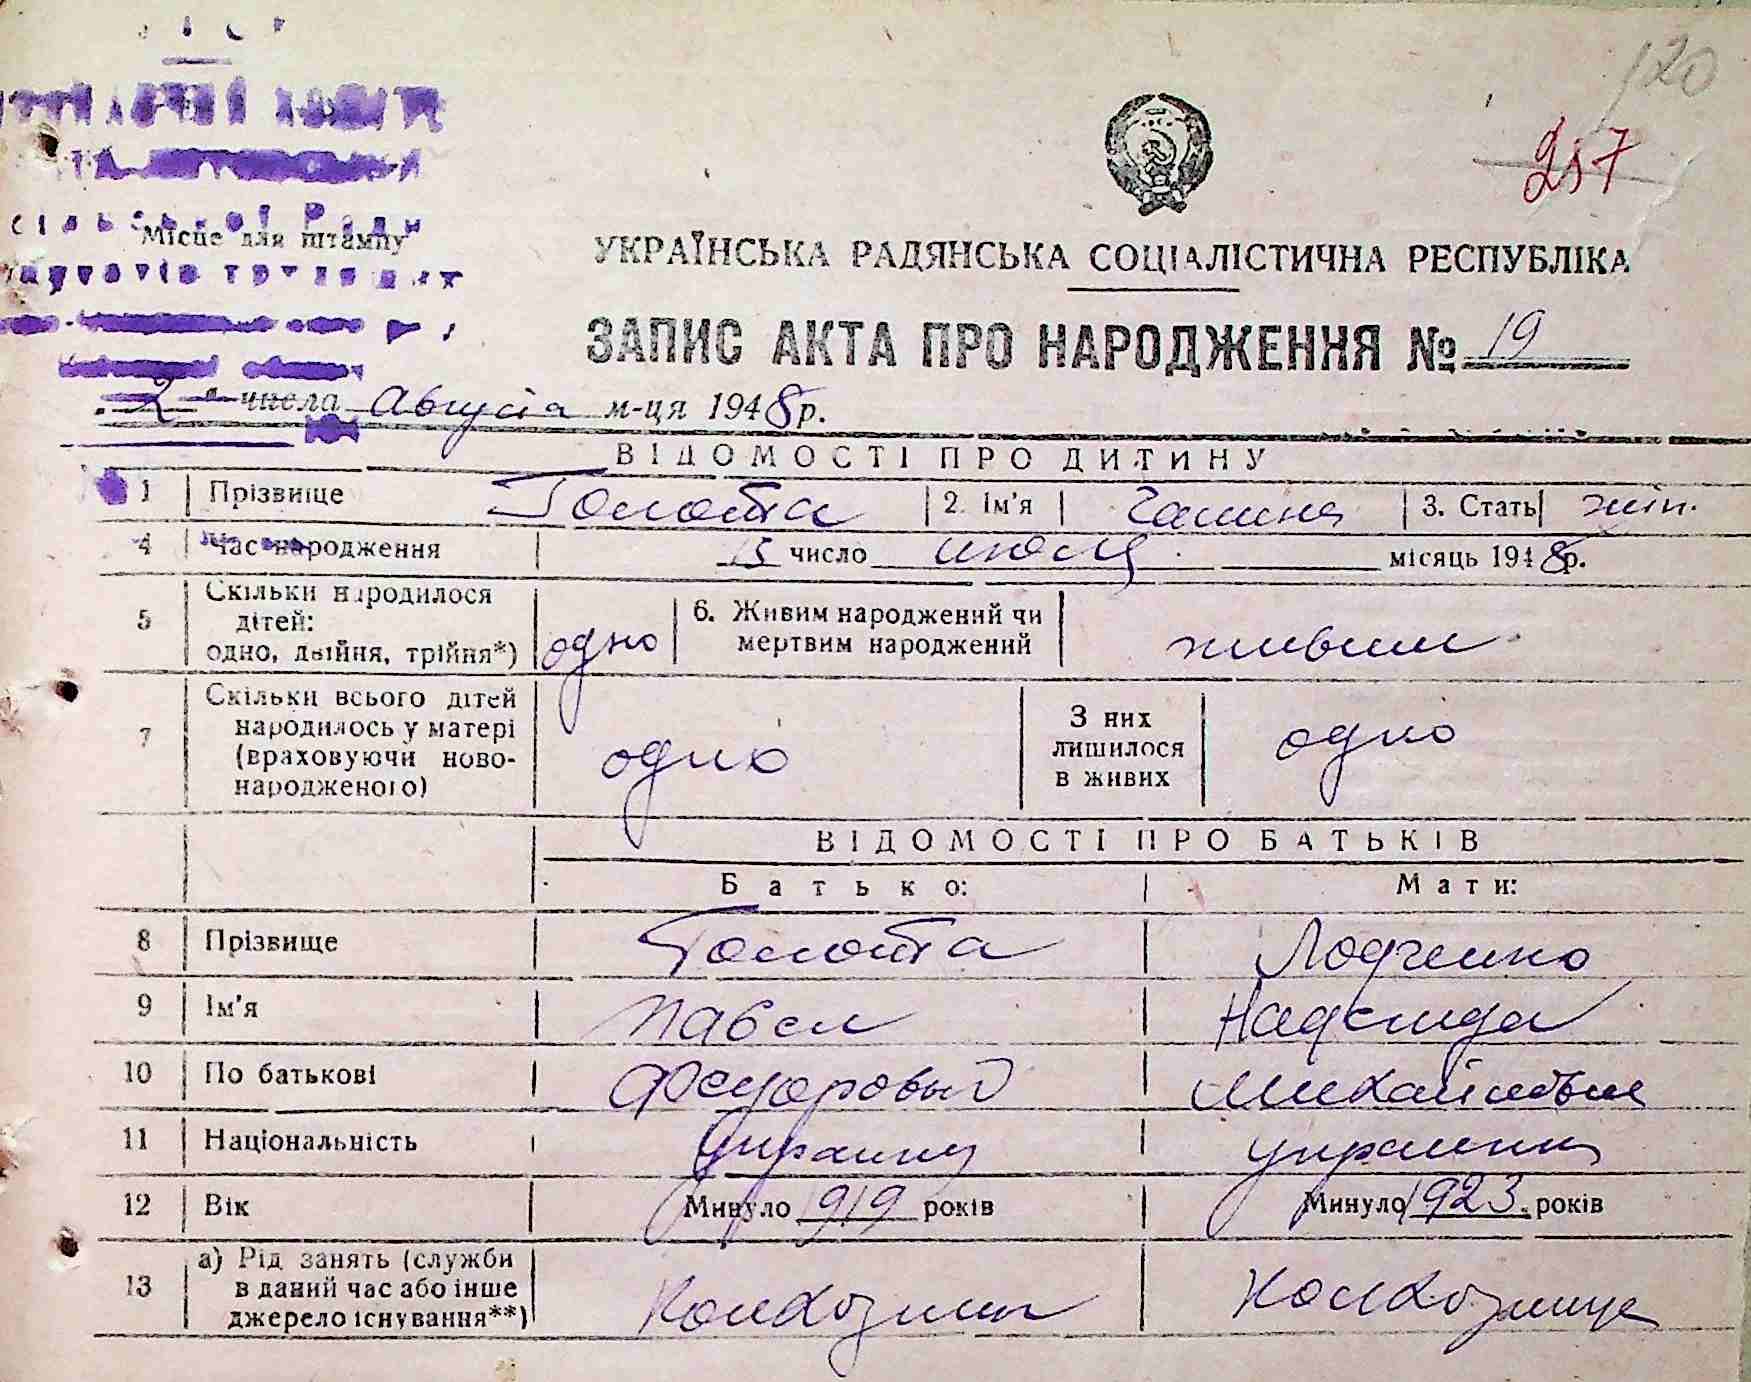 120
257
сільської Ради
Місце для штампу
УКРАЇНСЬКА РАДЯНСЬКА СОЦІАЛІСТИЧНА РЕСПУБЛІКА
ЗАПИС АКТА ПРО НАРОДЖЕННЯ № 19
2 " числа августа м-ця 1948 р.
ВІДОМОСТІ ПРО ДИТИНУ
1 Прізвище Голота 2. Ім'я Галина 3. Стать жін.
4 Час народження 13 число июля місяць 1948 р.
5 Скільки народилося дітей: одно, двійня, трійня*) одно 6. Живим народжений чи мертвим народжений живым
7 Скільки всього дітей народилось у матері (враховуючи новонародженого) одно З них лишилося в живих одно
ВІДОМОСТІ ПРО БАТЬКІВ
Батько: Мати:
8 Прізвище Голота Лодченко
9 Ім'я Павел Надежда
10 По батькові Федоровыч Михайловна
11 Національність украинец украинка
12 Вік Минуло 1919 років Минуло 1923 років
13 а) Рід занять (служби в даний час або інше джерело існування**) Колхозник Колхозница